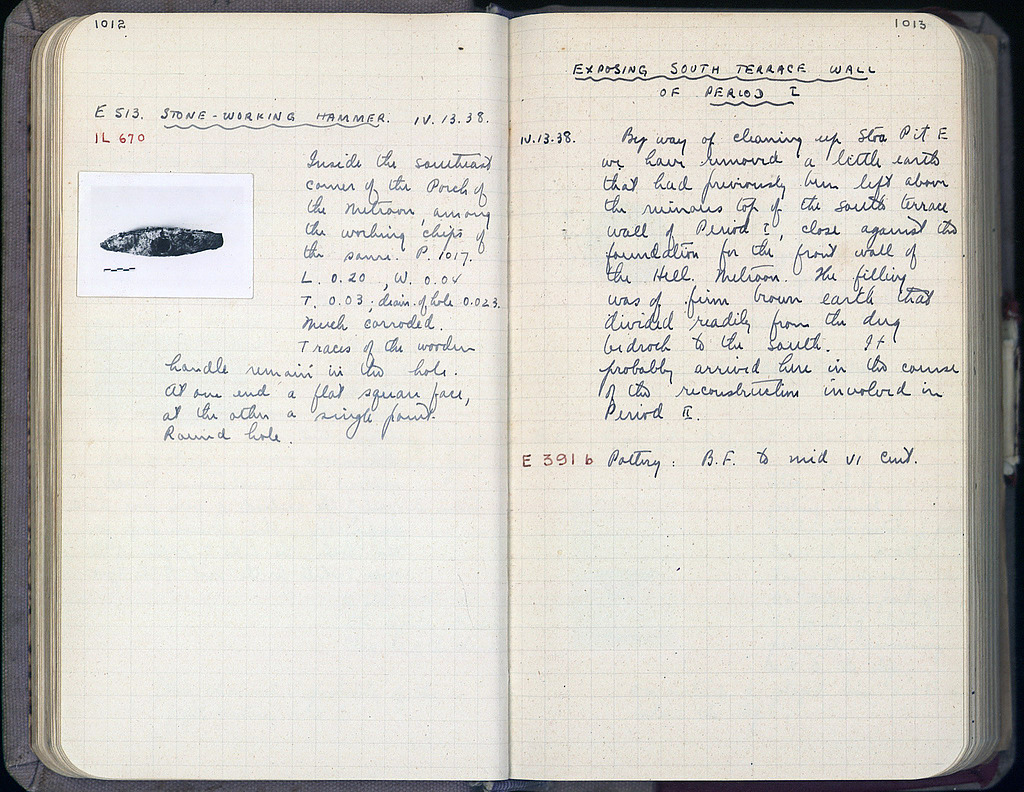 1012
E 513. STONE-WORKING HAMMER. IV.13.38.
IL 670
Inside the southeast
corner of the Porch of
the Metroon, among
the working chips of
the same. P. 1017.
L. 0.20, W. 0.04
T. 0.03; diam. of hole 0.023.
Much corroded.
Traces of the wooden
handle remain in the hole.
At one end a flat square face,
at the other a single point.
Round hole.
1013
EXPOSING SOUTH TERRACE WALL
OF PERIOD I
IV.13.38. By way of cleaning up Stoa Pit E
we have removed a little earth
that had previously been left above
the ruinous top of the south terrace
wall of Period I, close against the
foundation for the front wall of
the Hell. Metroon. The filling
was of firm brown earth that
divided readily from the dug
bedrock to the south. It
probably arrived here in the course
of the reconstruction involved in
Period II.
E 391 b Pottery: B.F. to mid VI cent.